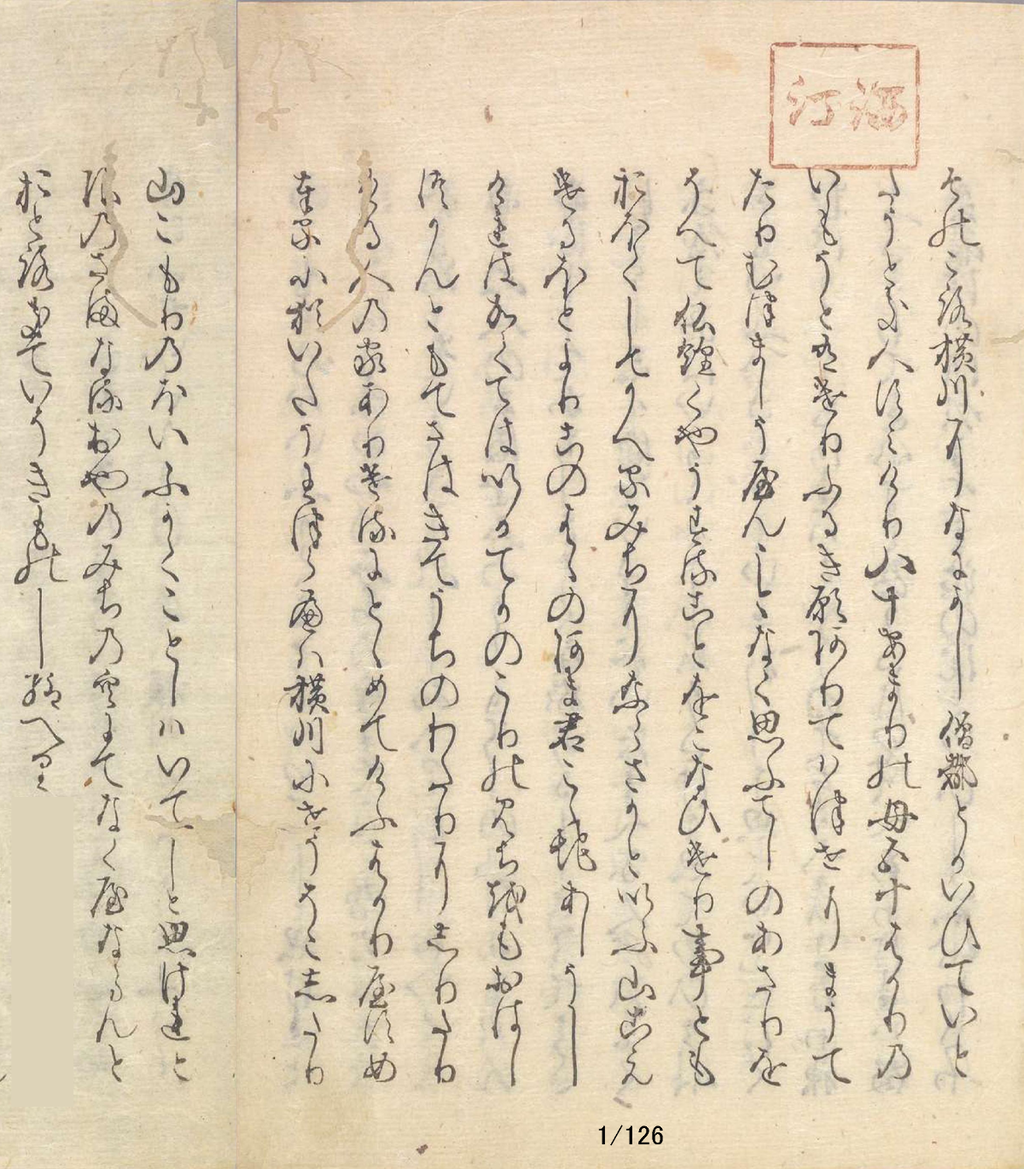 そのころ横川になにかし僧都とかいひていと
たうとき人すみけり八十あまりの母五十はかりの
いもうと有けりふるき願ありてはつせにまうて
たりむつましうやんことなく思ふてしのあさりを
そへて仏経くやうすることをこなひけり事とも
おほくしてかへるみちにならさかといふ山こえ
けるほとよりこのはゝのあま君こゝ地あしうし
けれはかくてはいかてかのこりのみちをもおはし
つかんともてさはきてうちのわたりにしりたり
ける人の家ありけるにとゝめてけふはかりやすめ
奉るに猶いたうわつらへは横川にせうそこしたり
山こもりのほいふかくことしはいてしと思けれと
限のさまなるおやのみちの空にてなくやならんと
おとろきていそきものし給へり
1/126